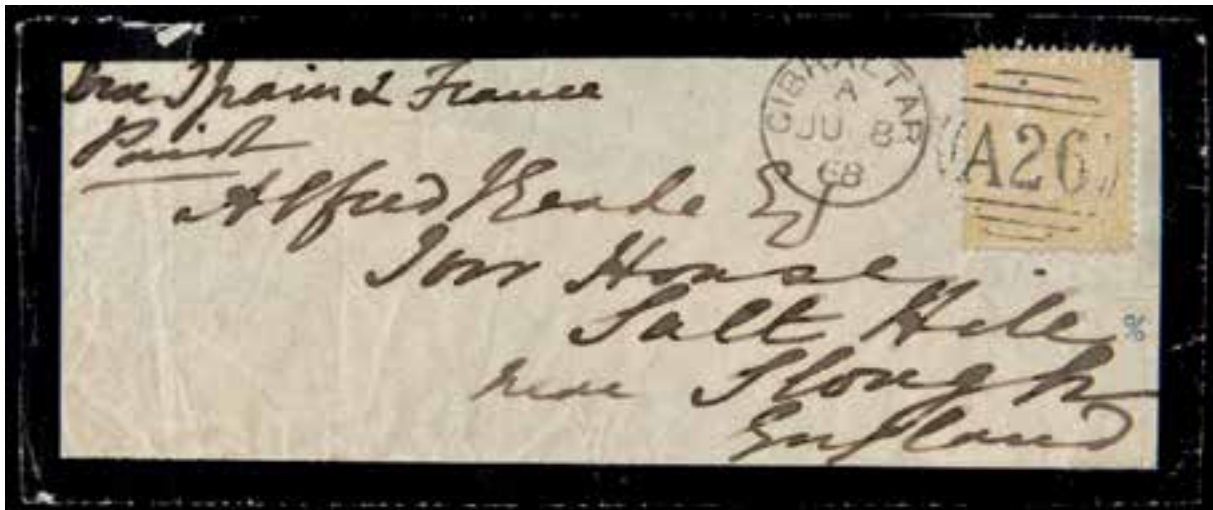 Via Spain & France
Paid
GIBRALTAR
A
JU 8
68
A26
Alfred Esq
House
Salt Hill
near Slough
England